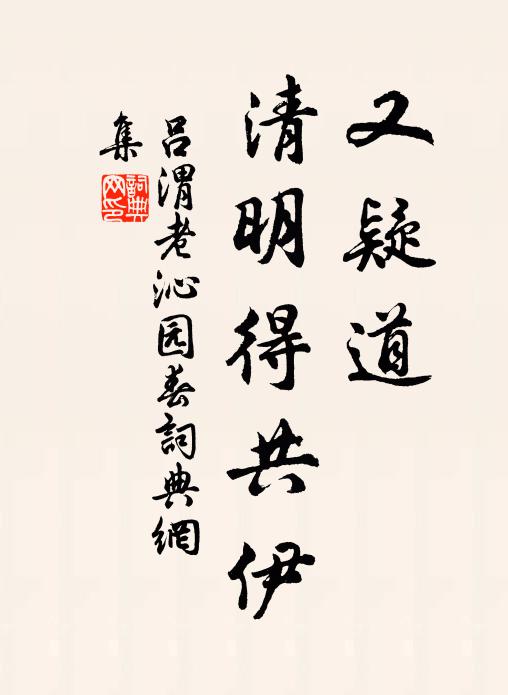 又疑道
清明得共伊
吕渭老沁园春詞典網
集
詞典网印